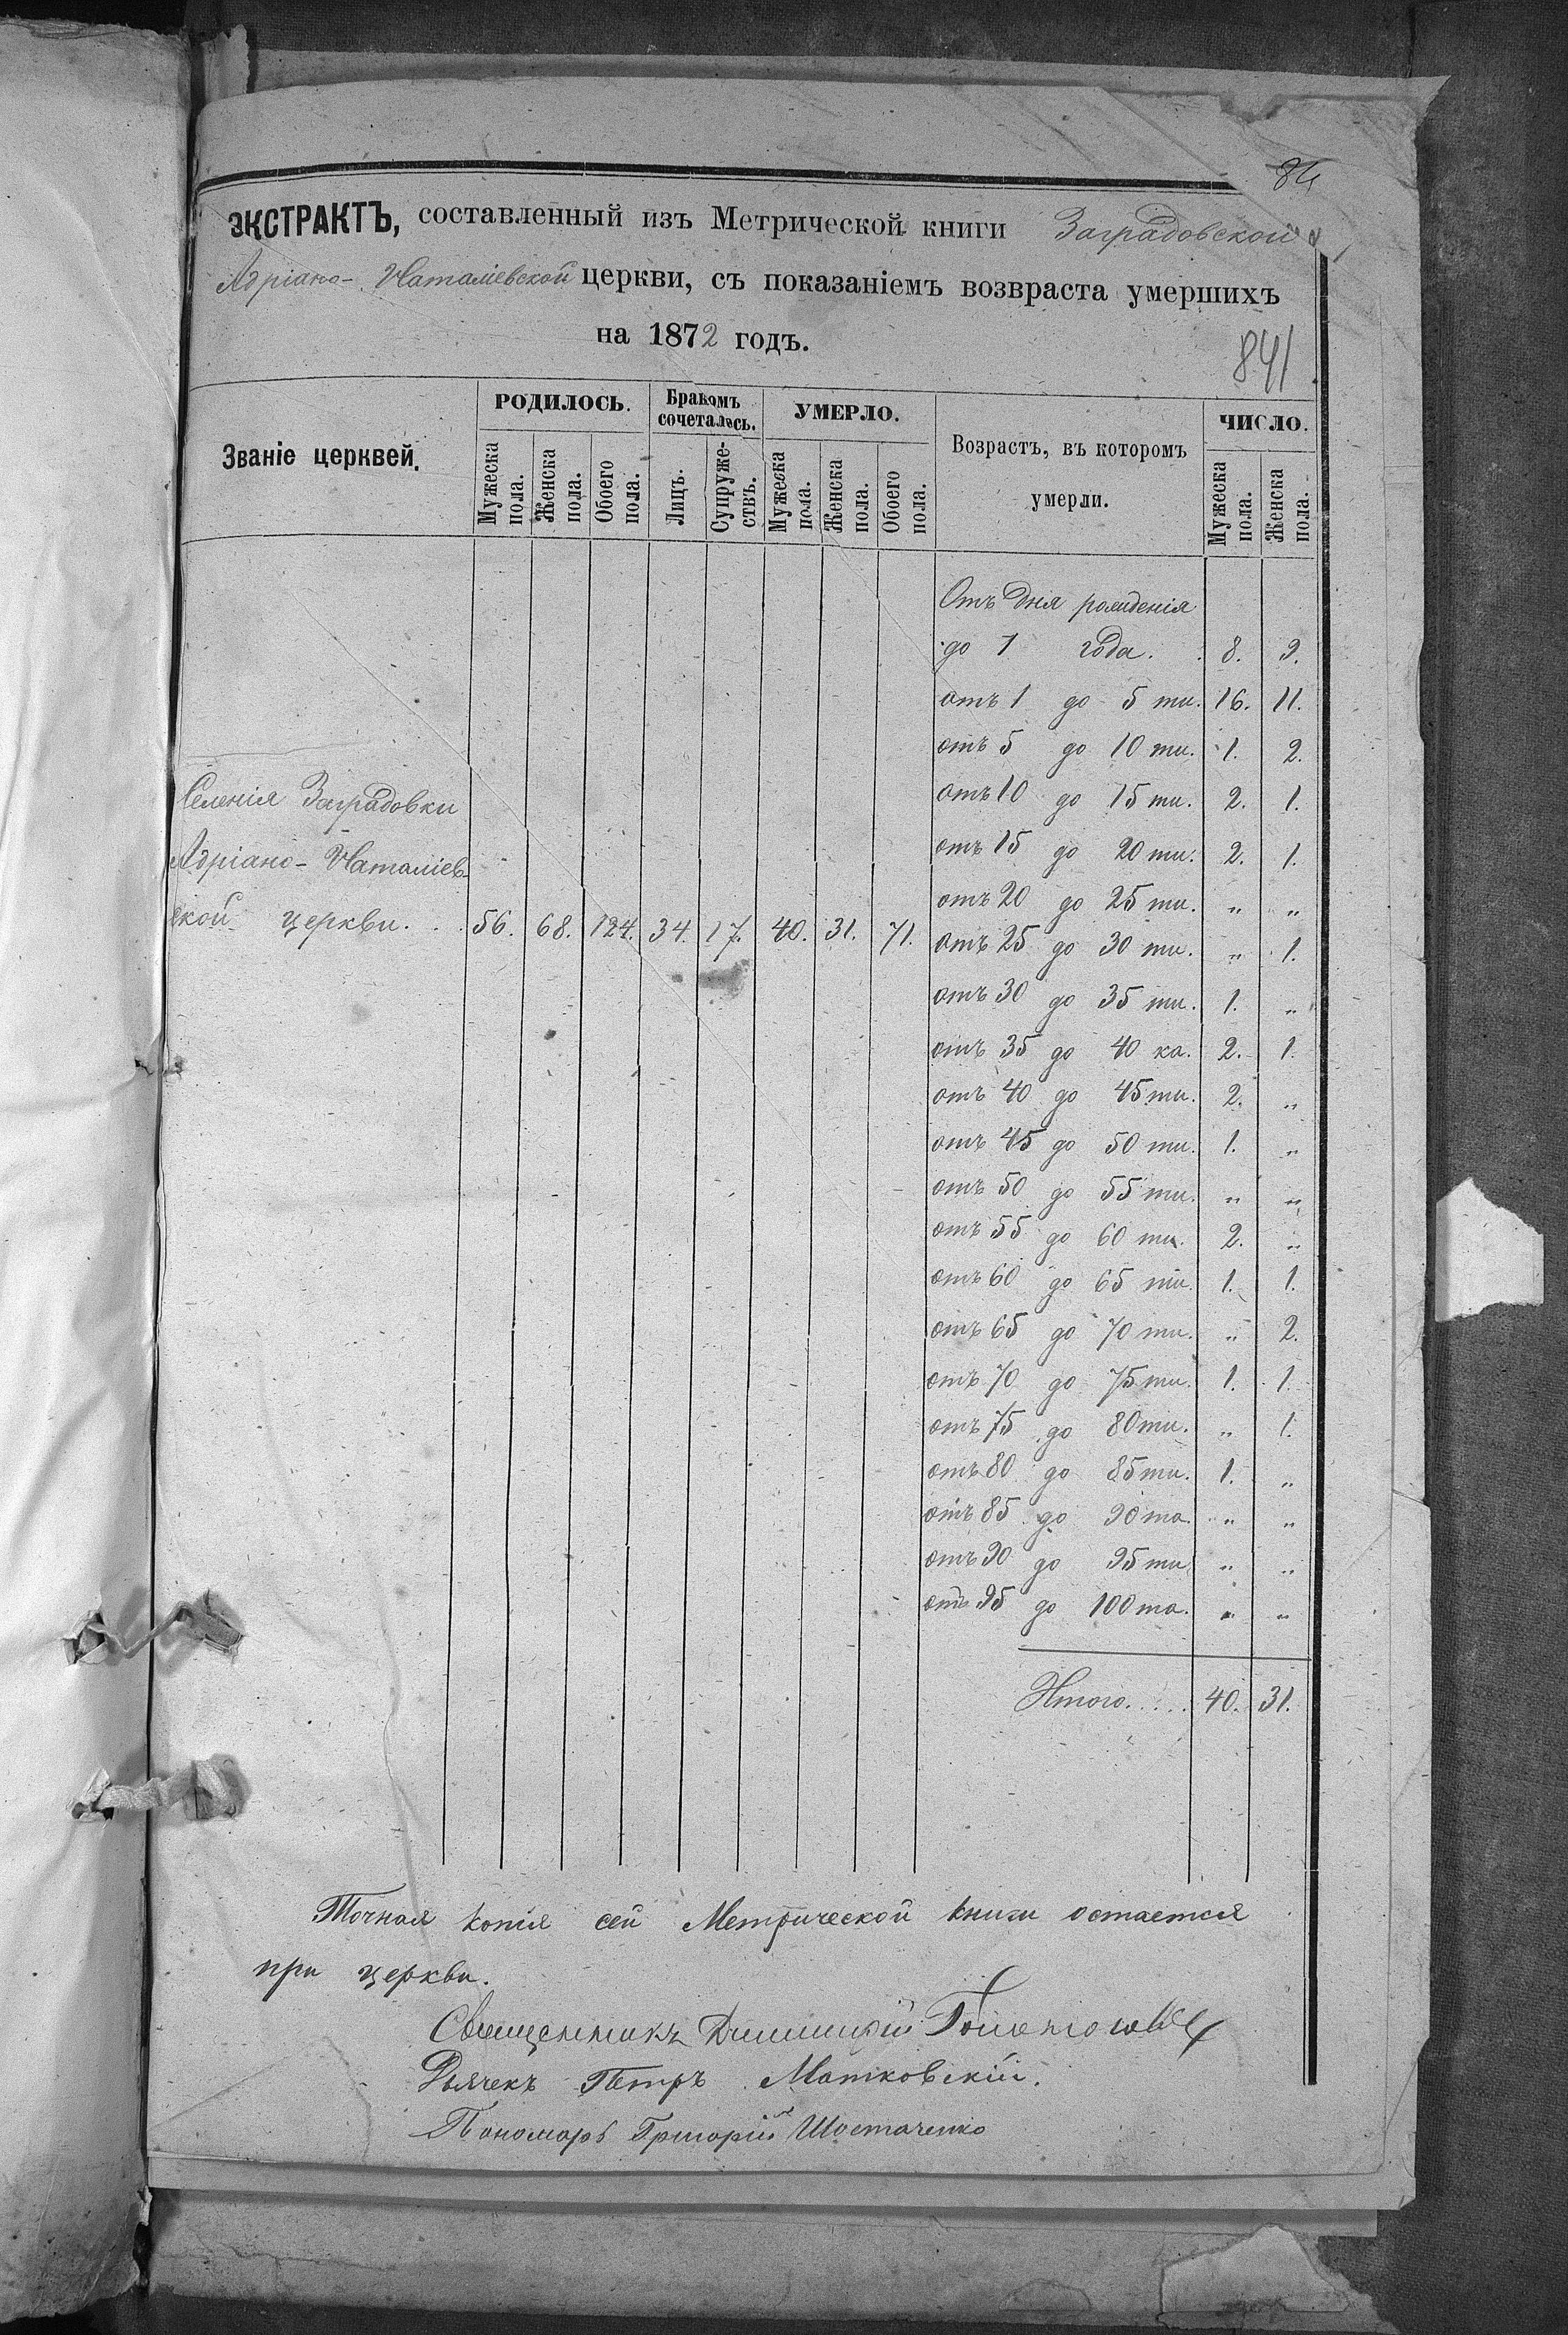 84
ЭКСТРАКТЪ, составленный изъ Метрической книги Заградовской
Адріано-Наталіевской церкви, съ показаніемъ возвраста умершихъ
на 1872 годъ.
841
Званіе церквей.
РОДИЛОСЬ.
Мужеска пола.
Женска пола.
Обоего пола.
Бракомъ сочеталось.
Лицъ.
Супружествъ.
УМЕРЛО.
Мужеска пола.
Женска пола.
Обоего пола.
Возрастъ, въ которомъ
умерли.
ЧИСЛО.
Мужеска пола.
Женска пола.
Отъ дня рожденія
до 1 года. 8. 9.
отъ 1 до 5 ти. 16. 11.
отъ 5 до 10 ти. 1. 2.
отъ 10 до 15 ти. 2. 1.
отъ 15 до 20 ти. 2. 1.
отъ 20 до 25 ти. „ „
отъ 25 до 30 ти. „ 1.
отъ 30 до 35 ти. 1. „
отъ 35 до 40 ка. 2. 1.
отъ 40 до 45 ти. 2. „
отъ 45 до 50 ти. 1. „
отъ 50 до 55 ти. „ „
отъ 55 до 60 ти. 2. „
отъ 60 до 65 ти. 1. 1.
отъ 65 до 70 ти. „ 2.
отъ 70 до 75 ти. 1. 1.
отъ 75 до 80 ти. „ 1.
отъ 80 до 85 ти. 1. „
отъ 85 до 90 то. „ „
отъ 90 до 95 ти „ „
отъ 95 до 100 та. „ „
Итого..... 40. 31.
Селенія Заградовки
Адріано-Наталіев-
ской церкви... 56. 68. 124. 34. 17. 40. 31. 71.
Точная копія сей Метрической книги остается
при церкви.
Священникъ Димитрій
Дьячекъ Петръ Матковскій.
Пономарь Григорій Шостаченко